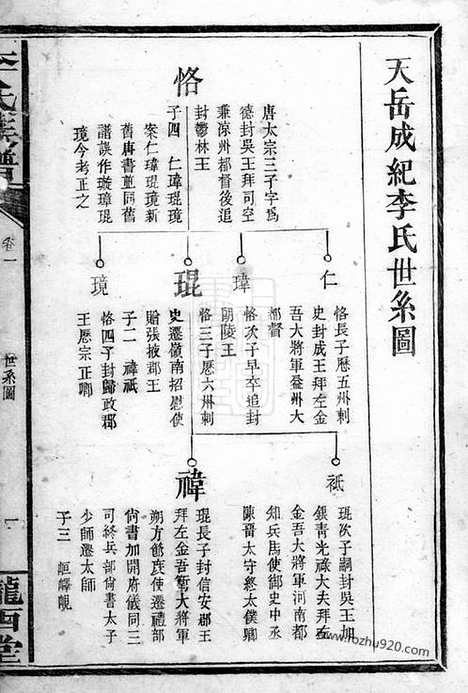 天岳成紀李氏世系圖
恪
唐太宗三子字為
德封吳王拜司空
兼涼州都督後追
封鬱林王
子四　仁瑋琨璄
案仁瑋琨璄新
舊唐書並同舊
譜誤作璇璋琨
璄今考正之
仁
恪長子歷五州刺
史封成王拜左金
吾大將軍益州大
都督
瑋
恪次子早卒追封
朗陵王
琨
恪三子歷六州刺
史遷嶺南招慰使
贈張掖郡王
子二　褘祇
璄
恪四子封歸政郡
王歷宗正卿
祇
琨次子嗣封吳王加
銀青光祿大夫拜左
金吾大將軍河南都
知兵馬使御史中丞
陳晉太守終太僕卿
褘
琨長子封信安郡王
拜左金吾衛大將軍
朔方節度使遷禮部
尙書加開府儀同三
司終兵部尙書太子
少師遷太師
子三　峘嶧峴
李氏族譜
卷一
世系圖
一
隴西堂
www.fozhu920.com